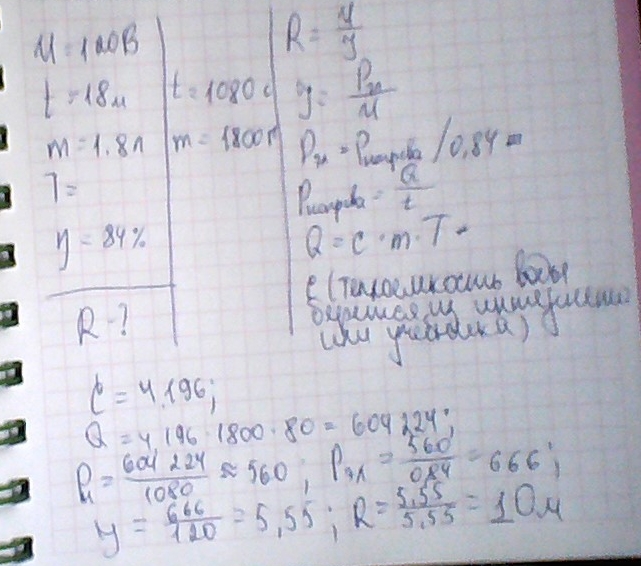 U = 120В
t = 18м
m = 1.8л
T =
η = 84%
R - ?
t = 1080 с
m = 1800г
R = U/Y
Y = Pэл/U
Pэл = Pнагрева / 0,84 =
Pнагрева = Q/t
Q = c · m · T -
c (теплоемкость воды
берется из интернета
или учебника)
C = 4.196;
Q = 4196 · 1800 · 80 = 604 224;
Pн = 604 224/1080 ≈ 560; Pэл = 560/0,84 = 666;
Y = 666/120 = 5,55; R = 5,55/5,55 = 1 Ом